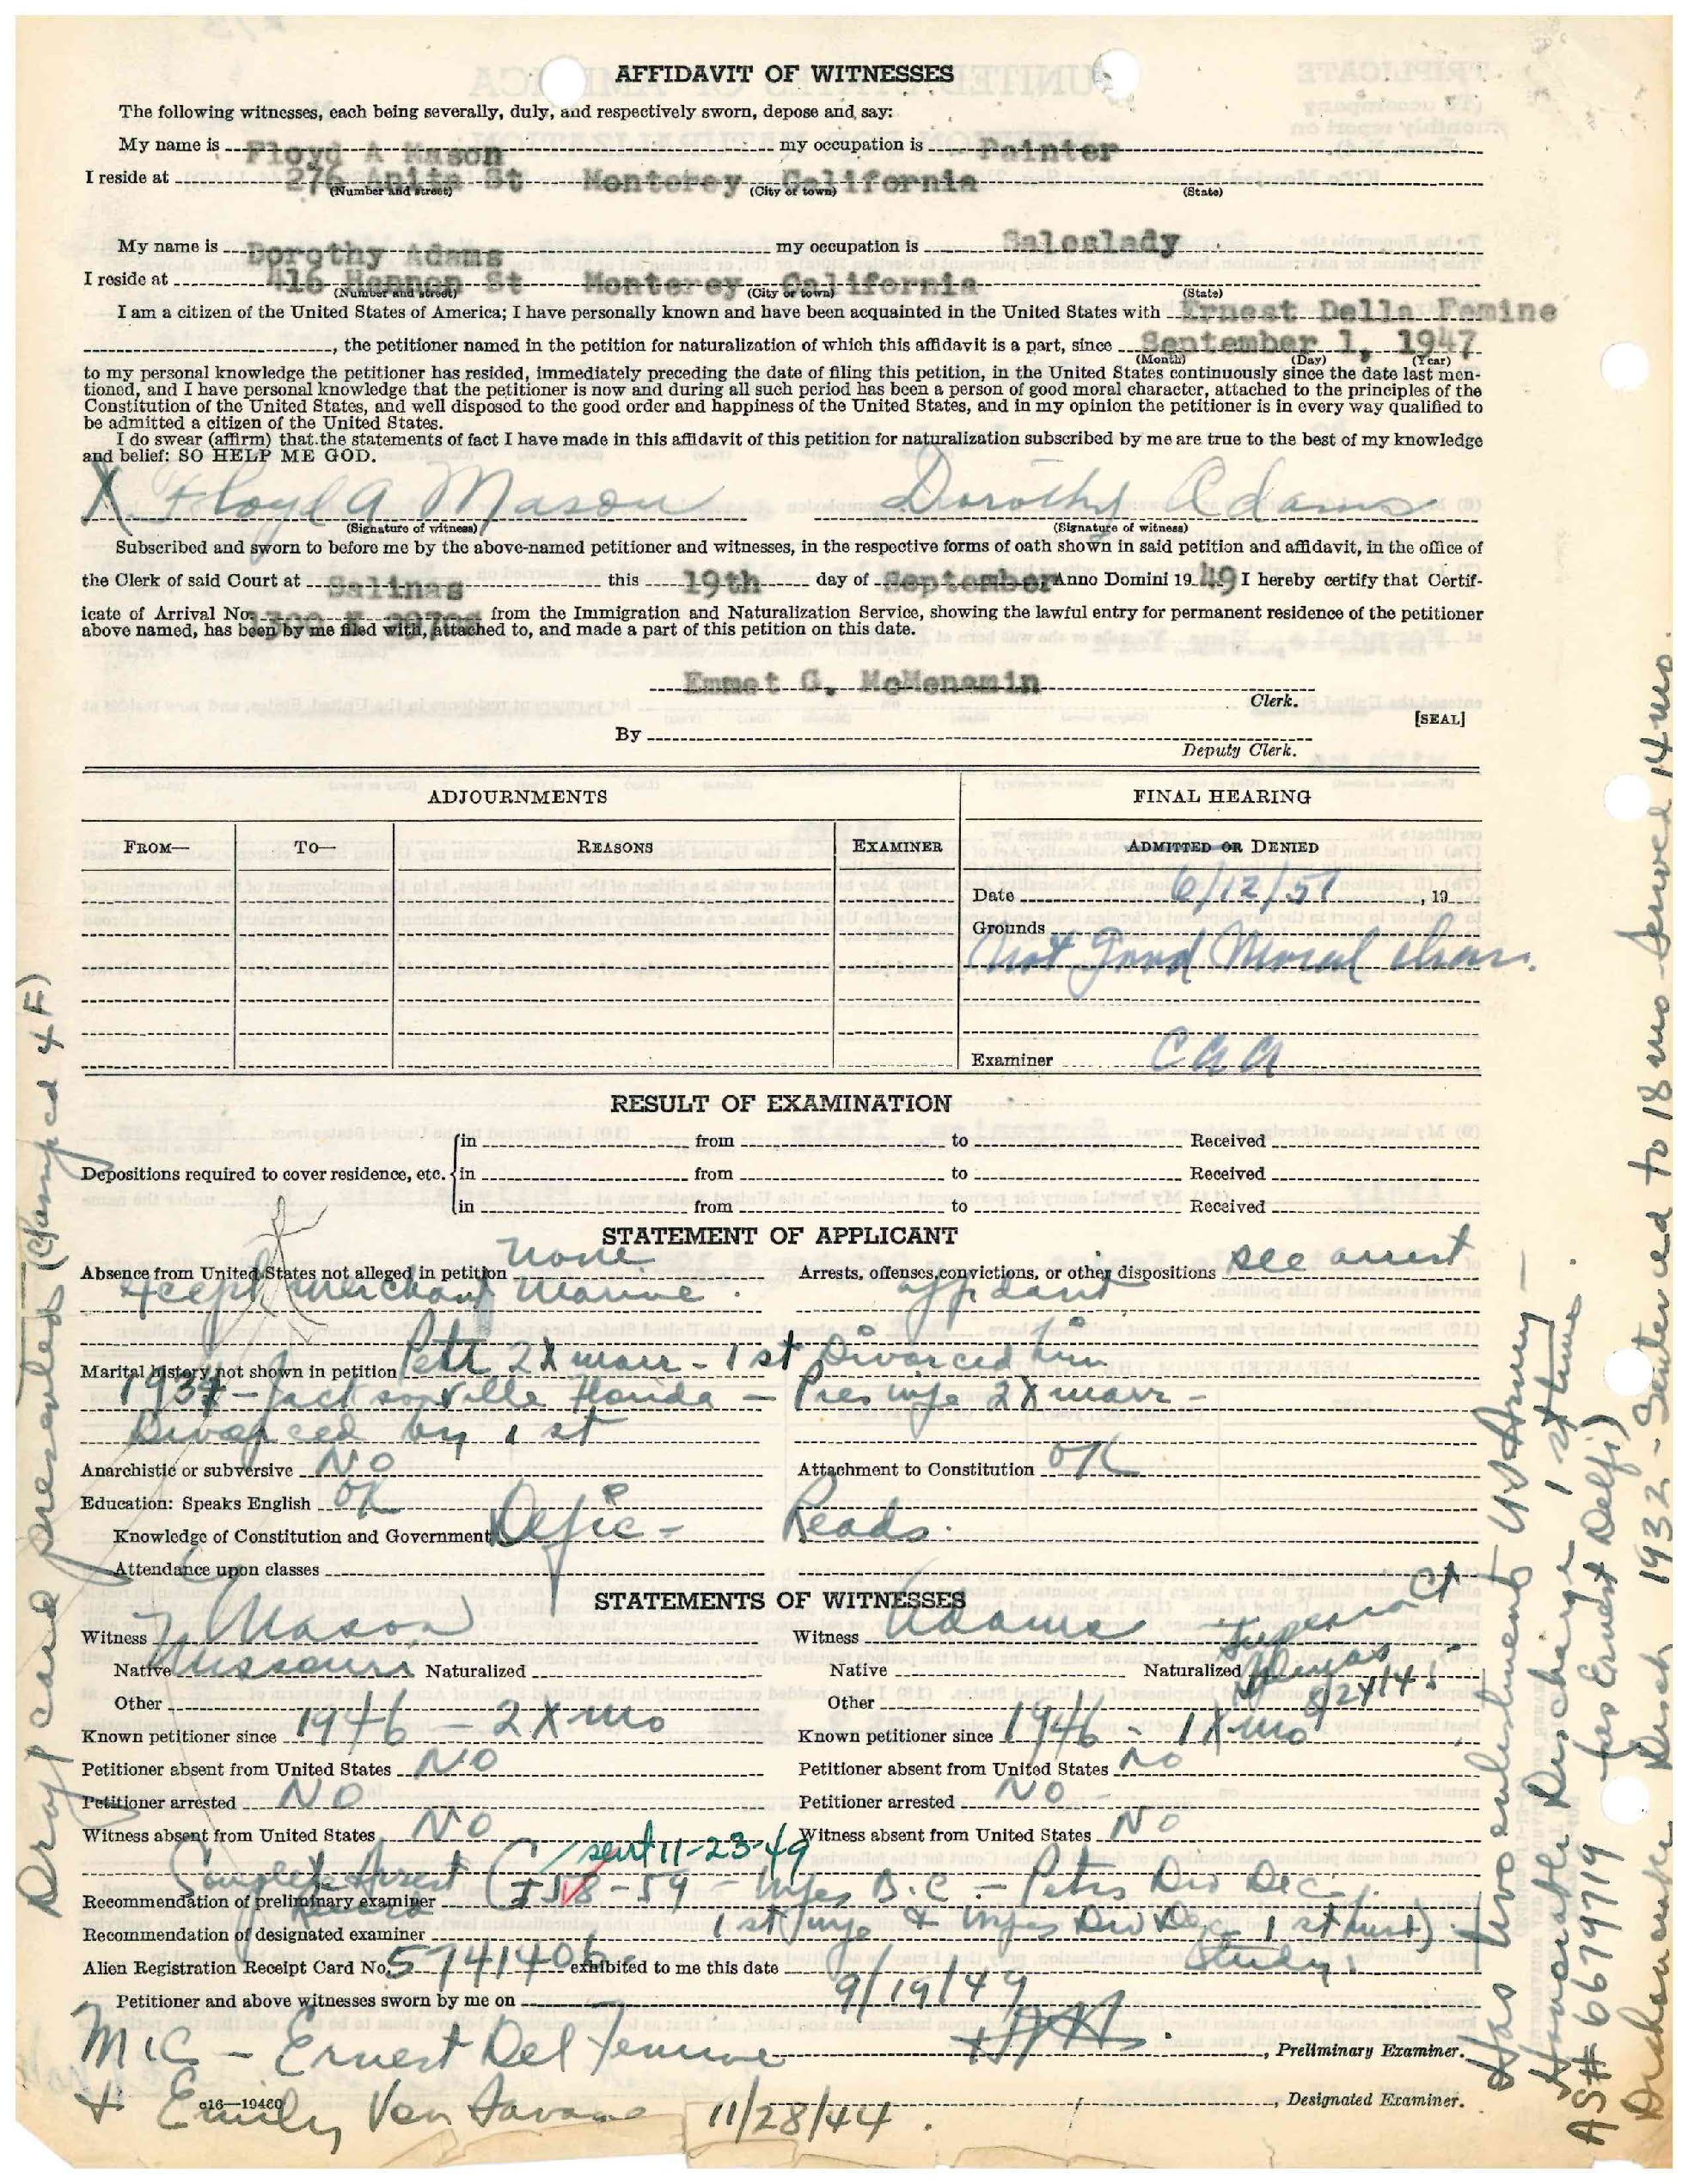 AFFIDAVIT OF WITNESSES
The following witnesses, each being severally, duly, and respectively sworn, depose and say:
My name is Floyd A Mason my occupation is Painter
I reside at 276 Anita St Monterey California
(Number and street) (City or town) (State)
My name is Dorothy Adams my occupation is Saleslady
I reside at 416 Hannon St Monterey California
(Number and street) (City or town) (State)
I am a citizen of the United States of America; I have personally known and have been acquainted in the United States with Ernest Della Femine
, the petitioner named in the petition for naturalization of which this affidavit is a part, since September 1, 1947
(Month) (Day) (Year)
to my personal knowledge the petitioner has resided, immediately preceding the date of filing this petition, in the United States continuously since the date last men-
tioned, and I have personal knowledge that the petitioner is now and during all such period has been a person of good moral character, attached to the principles of the
Constitution of the United States, and well disposed to the good order and happiness of the United States, and in my opinion the petitioner is in every way qualified to
be admitted a citizen of the United States.
I do swear (affirm) that the statements of fact I have made in this affidavit of this petition for naturalization subscribed by me are true to the best of my knowledge
and belief: SO HELP ME GOD.
X Floyd A Mason Dorothy Adams
(Signature of witness) (Signature of witness)
Subscribed and sworn to before me by the above-named petitioner and witnesses, in the respective forms of oath shown in said petition and affidavit, in the office of
the Clerk of said Court at Salinas this 19th day of September Anno Domini 19 49 I hereby certify that Certif-
icate of Arrival No. from the Immigration and Naturalization Service, showing the lawful entry for permanent residence of the petitioner
above named, has been by me filed with, attached to, and made a part of this petition on this date.
Emmet G. McMenamin
Clerk.
[SEAL]
By
Deputy Clerk.
ADJOURNMENTS FINAL HEARING
FROM— TO— REASONS EXAMINER ADMITTED OR DENIED
Date 6/12/51, 19
Grounds
Not Good Moral Char.
Examiner CAA
RESULT OF EXAMINATION
in from to Received
Depositions required to cover residence, etc. in from to Received
in from to Received
STATEMENT OF APPLICANT
Absence from United States not alleged in petition none Arrests, offenses, convictions, or other dispositions see arrest
Xcept Merchant Marine. affidavit
Marital history not shown in petition Petr 2X marr - 1st Divorced him
1937 - Jacksonville Florida - Pres wife 2X marr -
Divorced by 1st
Anarchistic or subversive NO Attachment to Constitution OK
Education: Speaks English OK
Knowledge of Constitution and Government Defic - Reads.
Attendance upon classes
STATEMENTS OF WITNESSES
Witness Mason Witness Adams Superior Ct
Native Missouri Naturalized Native Naturalized
Other Other
Known petitioner since 1946 - 2X mo Known petitioner since 1946 - 1X mo
Petitioner absent from United States NO Petitioner absent from United States NO
Petitioner arrested NO Petitioner arrested NO
Witness absent from United States NO Witness absent from United States NO
sent 11-23-49
Complete Arrest - Wifes B.C. - Petrs Div Dec.
Recommendation of preliminary examiner
1st wife & Wifes Div Dec 1st husb)
Recommendation of designated examiner
Study.
Alien Registration Receipt Card No. 5741406 exhibited to me this date
Petitioner and above witnesses sworn by me on 9/19/49
, Preliminary Examiner.
M/C - Ernest Del Femine
+ Emily Van 11/28/44.
c16—19460
, Designated Examiner.
Draft card presented (Stamped 4F)
Has two enlistments US Army -
Honorable Discharge 1st time.
AS# 6679719 (as Ernest Delfi)
Dishonorable Disch 1932 - Sentenced to 18 mo - Served 14 mo.
TRIPLICATE
UNITED STATES OF AMERICA